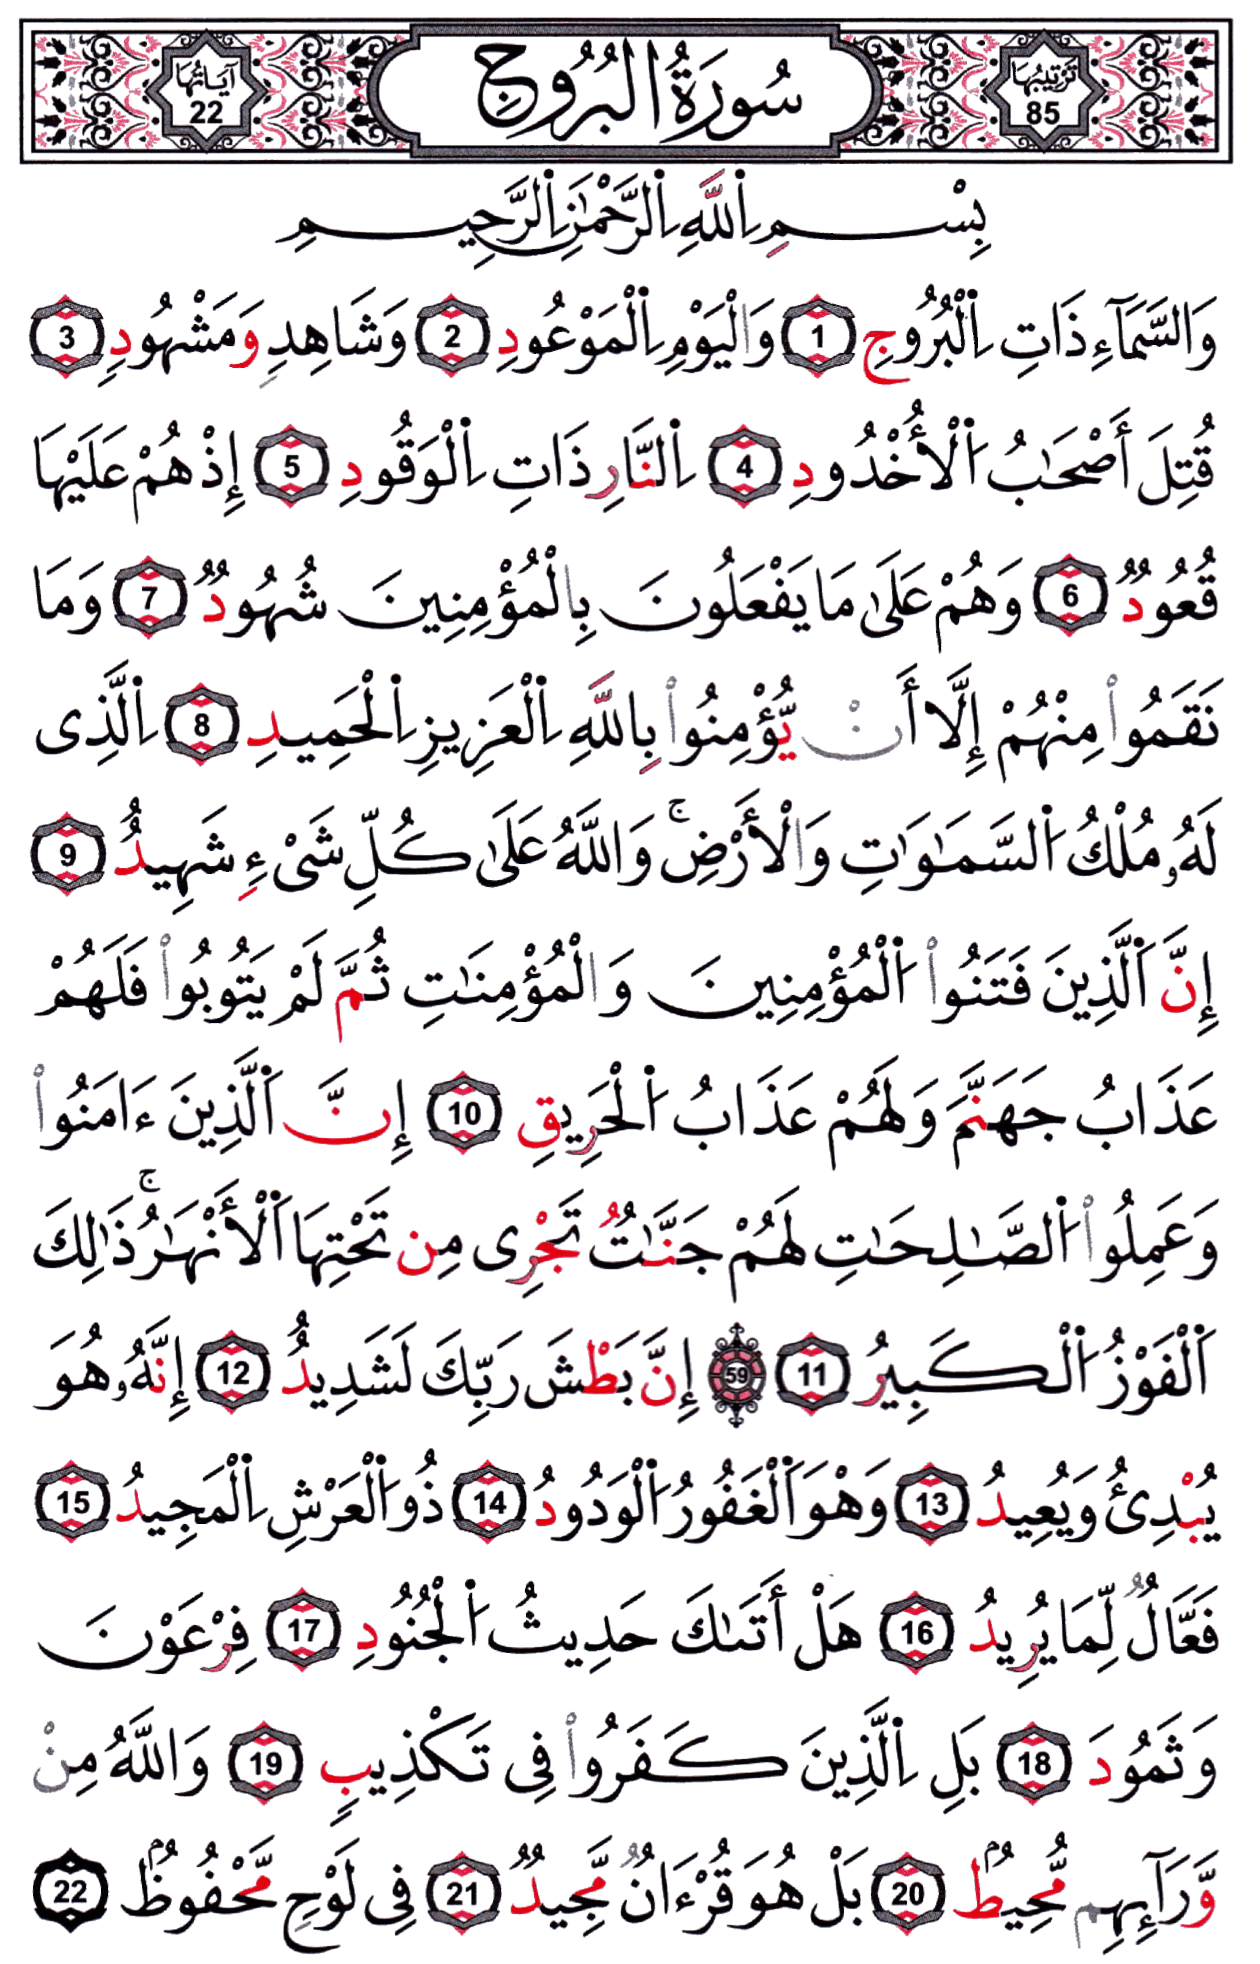 ترتيبها 85 سُورَةُ الْبُرُوجِ آياتها 22
بِسْمِ اِ۬للَّهِ اِ۬لرَّحْمَٰنِ اِ۬لرَّحِيمِ
وَالسَّمَآءِ ذَاتِ اِ۬لْبُرُوجِ 1 وَالْيَوْمِ اِ۬لْمَوْعُودِ 2 وَشَاهِدٍ وَمَشْهُودٍ 3
قُتِلَ أَصْحَٰبُ اُ۬لْأُخْدُودِ 4 اِ۬لنَّارِ ذَاتِ اِ۬لْوَقُودِ 5 إِذْ هُمْ عَلَيْهَا
قُعُودٌ 6 وَهُمْ عَلَىٰ مَا يَفْعَلُونَ بِالْمُؤْمِنِينَ شُهُودٌ 7 وَمَا
نَقَمُواْ مِنْهُمْ إِلَّا أَنْ يُّؤْمِنُواْ بِاللَّهِ اِ۬لْعَزِيزِ اِ۬لْحَمِيدِ 8 اِ۬لَّذِى
لَهُۥ مُلْكُ اُ۬لسَّمَٰوَٰتِ وَالْأَرْضِۚ وَاللَّهُ عَلَىٰ كُلِّ شَىْءٍ شَهِيدٌ 9
إِنَّ اَ۬لَّذِينَ فَتَنُواْ اُ۬لْمُؤْمِنِينَ وَالْمُؤْمِنَٰتِ ثُمَّ لَمْ يَتُوبُواْ فَلَهُمْ
عَذَابُ جَهَنَّمَ وَلَهُمْ عَذَابُ اُ۬لْحَرِيقِ 10 إِنَّ اَ۬لَّذِينَ ءَامَنُواْ
وَعَمِلُواْ اُ۬لصَّٰلِحَٰتِ لَهُمْ جَنَّٰتٌ تَجْرِى مِن تَحْتِهَا اَ۬لْأَنْهَٰرُۚ ذَٰلِكَ
اَ۬لْفَوْزُ اُ۬لْكَبِيرُ 11 59 إِنَّ بَطْشَ رَبِّكَ لَشَدِيدٌ 12 إِنَّهُۥ هُوَ
يُبْدِئُ وَيُعِيدُ 13 وَهْوَ اَ۬لْغَفُورُ اُ۬لْوَدُودُ 14 ذُو اَ۬لْعَرْشِ اِ۬لْمَجِيدُ 15
فَعَّالٌ لِّمَا يُرِيدُ 16 هَلْ أَتَىٰكَ حَدِيثُ اُ۬لْجُنُودِ 17 فِرْعَوْنَ
وَثَمُودَ 18 بَلِ اِ۬لَّذِينَ كَفَرُواْ فِى تَكْذِيبٍ 19 وَاللَّهُ مِنْ
وَّرَآئِهِم مُّحِيطٌۢ 20 بَلْ هُوَ قُرْءَانٌ مَّجِيدٌ 21 فِى لَوْحٍ مَّحْفُوظٌۢ 22